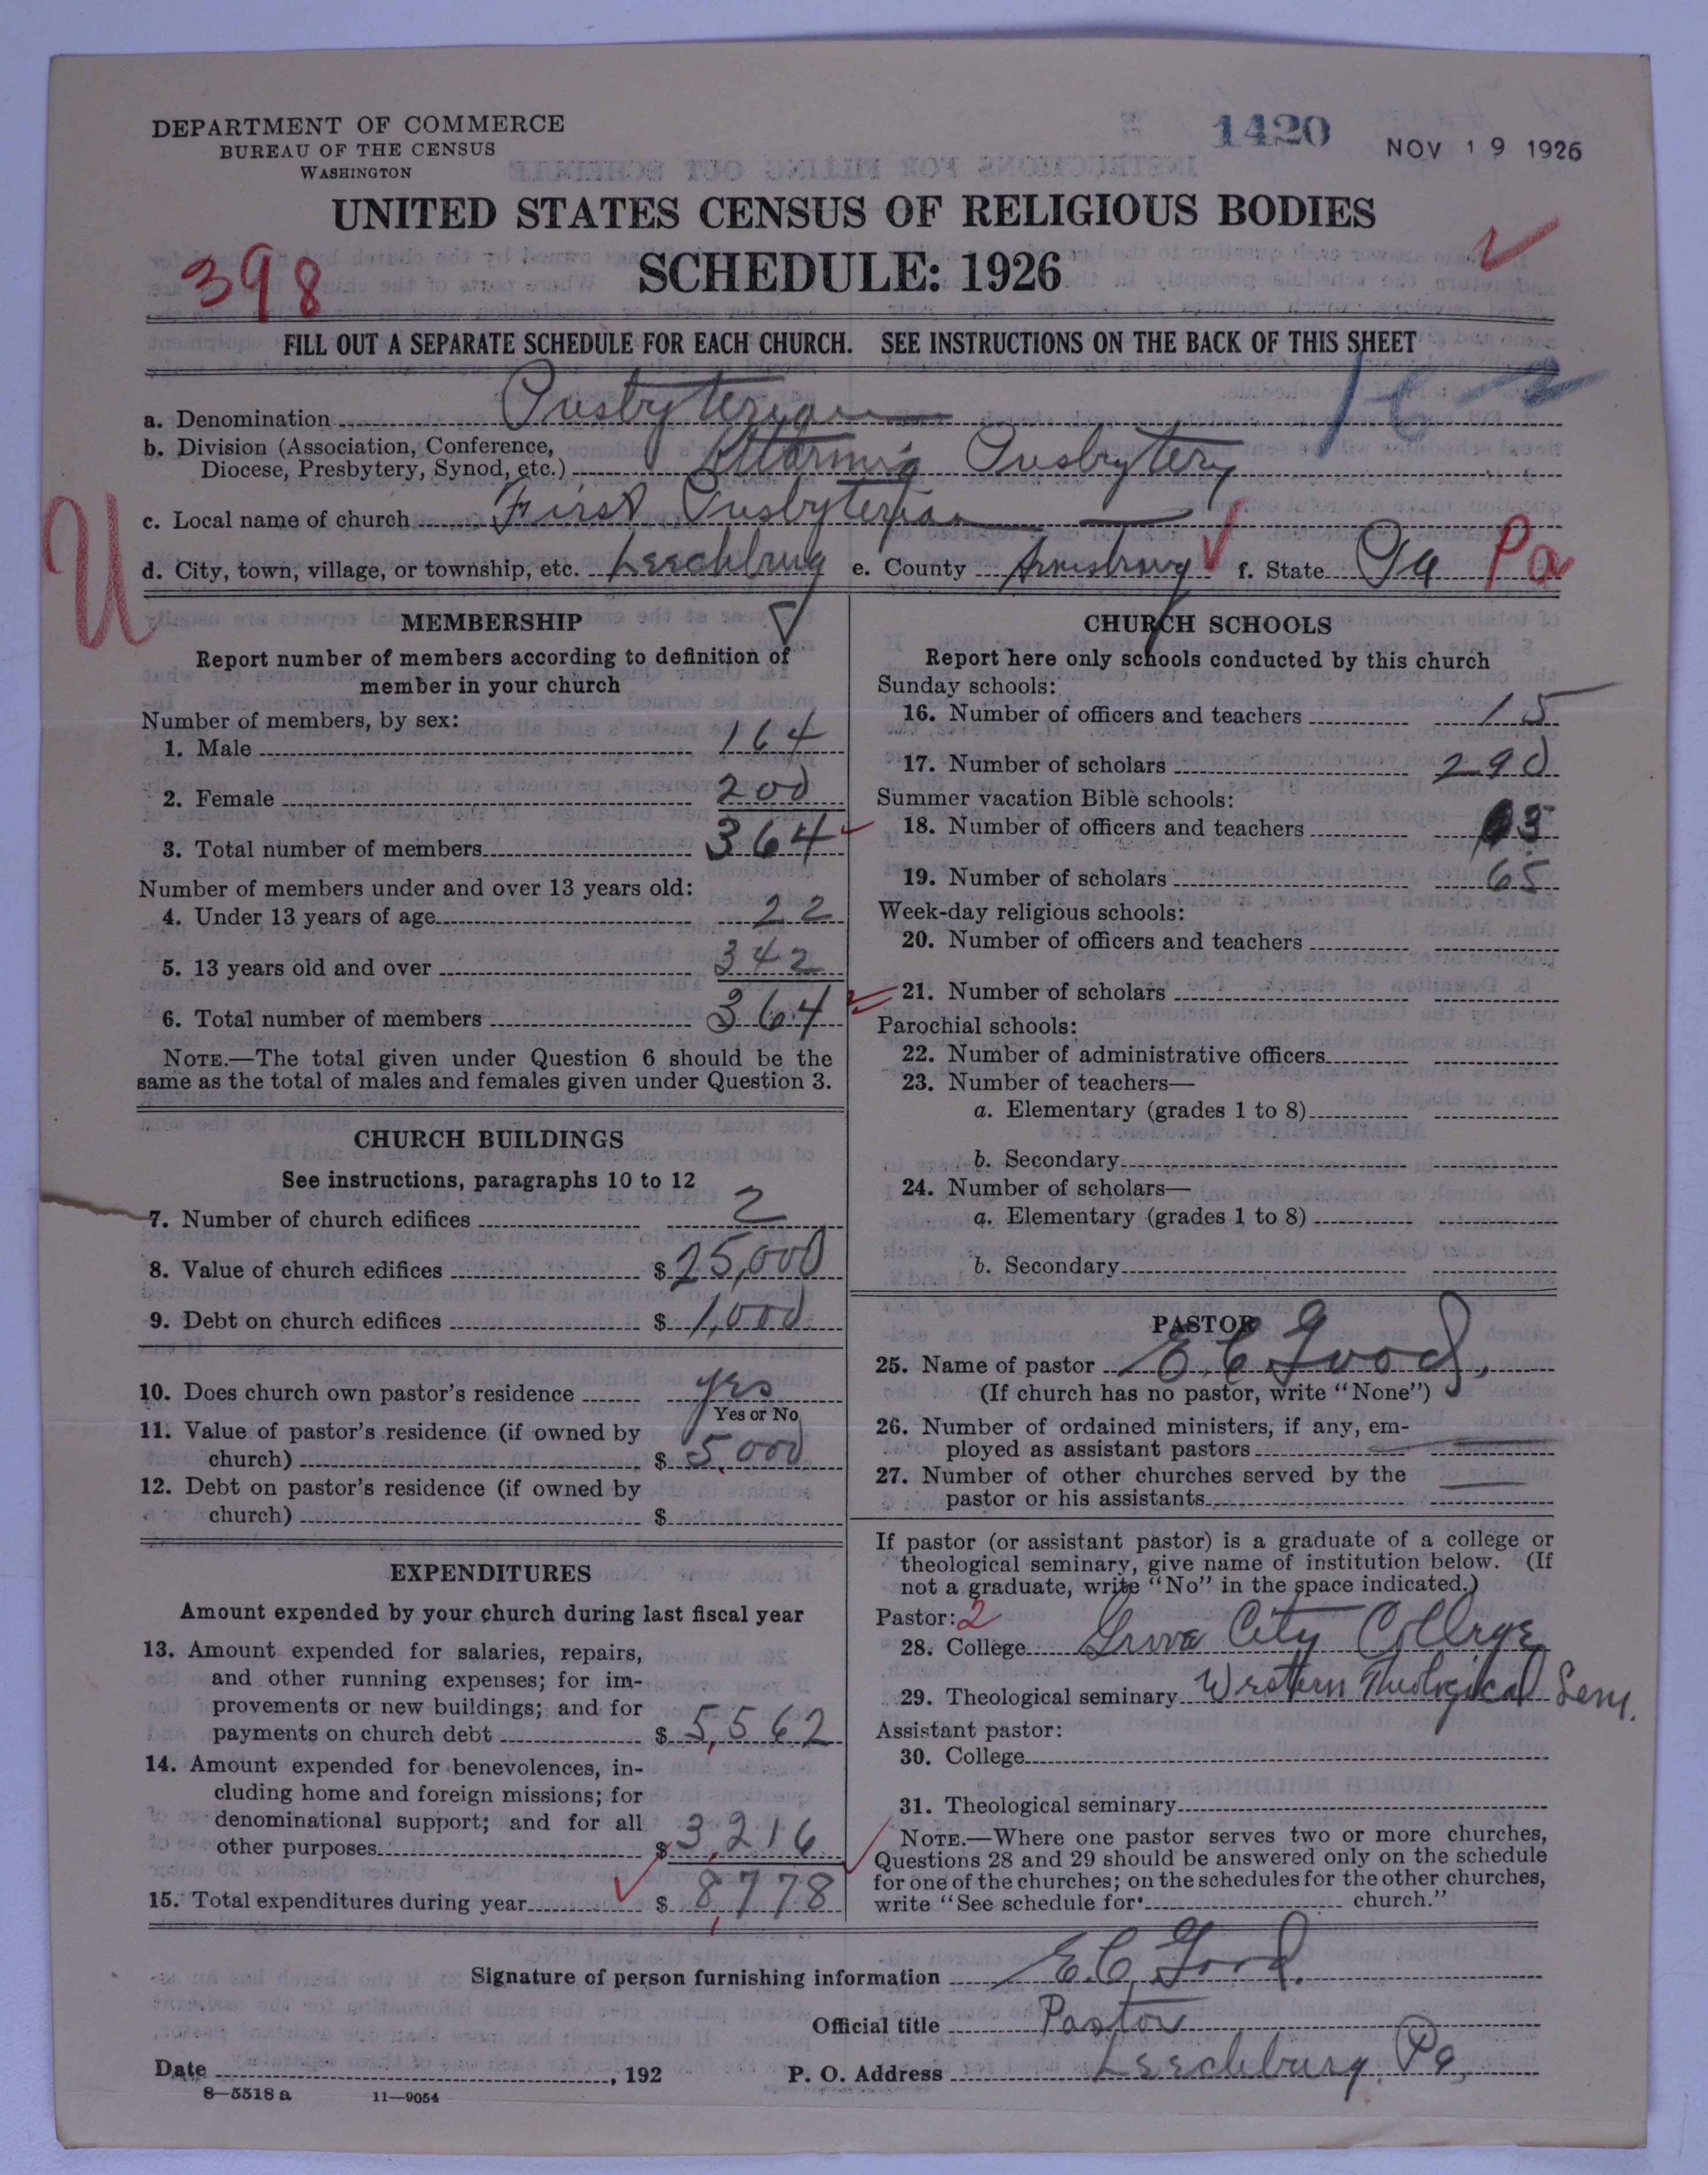 DEPARTMENT OF COMMERCE
BUREAU OF THE CENSUS
WASHINGTON
1420
NOV 19 1926
UNITED STATES CENSUS OF RELIGIOUS BODIES
398
SCHEDULE: 1926
FILL OUT A SEPARATE SCHEDULE FOR EACH CHURCH. SEE INSTRUCTIONS ON THE BACK OF THIS SHEET
16-2
a. Denomination Presbyterian
b. Division (Association, Conference,
Diocese, Presbytery, Synod, etc.) Presbytery
c. Local name of church First Presbyterian
U
d. City, town, village, or township, etc. Leechburg e. County Armstrong f. State Pa Pa
MEMBERSHIP
Report number of members according to definition of
member in your church
Number of members, by sex:
1. Male 164
2. Female 200
3. Total number of members 364
Number of members under and over 13 years old:
4. Under 13 years of age 22
5. 13 years old and over 342
6. Total number of members 364
NOTE.—The total given under Question 6 should be the
same as the total of males and females given under Question 3.
CHURCH BUILDINGS
See instructions, paragraphs 10 to 12
7. Number of church edifices 2
8. Value of church edifices $ 25,000
9. Debt on church edifices $ 1,000
10. Does church own pastor's residence yes
Yes or No
11. Value of pastor's residence (if owned by
church) $ 5,000
12. Debt on pastor's residence (if owned by
church) $
EXPENDITURES
Amount expended by your church during last fiscal year
13. Amount expended for salaries, repairs,
and other running expenses; for im-
provements or new buildings; and for
payments on church debt $ 5,562
14. Amount expended for benevolences, in-
cluding home and foreign missions; for
denominational support; and for all
other purposes $ 3,216
15. Total expenditures during year $ 8,778
CHURCH SCHOOLS
Report here only schools conducted by this church
Sunday schools:
16. Number of officers and teachers 15
17. Number of scholars 290
Summer vacation Bible schools:
18. Number of officers and teachers 3
19. Number of scholars 65
Week-day religious schools:
20. Number of officers and teachers
21. Number of scholars
Parochial schools:
22. Number of administrative officers
23. Number of teachers—
a. Elementary (grades 1 to 8)
b. Secondary
24. Number of scholars—
a. Elementary (grades 1 to 8)
b. Secondary
PASTOR
25. Name of pastor E. C. Good,
(If church has no pastor, write "None")
26. Number of ordained ministers, if any, em-
ployed as assistant pastors
27. Number of other churches served by the
pastor or his assistants
If pastor (or assistant pastor) is a graduate of a college or
theological seminary, give name of institution below. (If
not a graduate, write "No" in the space indicated.)
Pastor: 2
28. College Grove City College
29. Theological seminary Western Theological Sem.
Assistant pastor:
30. College
31. Theological seminary
NOTE.—Where one pastor serves two or more churches,
Questions 28 and 29 should be answered only on the schedule
for one of the churches; on the schedules for the other churches,
write "See schedule for church."
Signature of person furnishing information E. C. Good.
Official title Pastor
Date , 192 P. O. Address Leechburg, Pa,
8—5518 a 11—9054